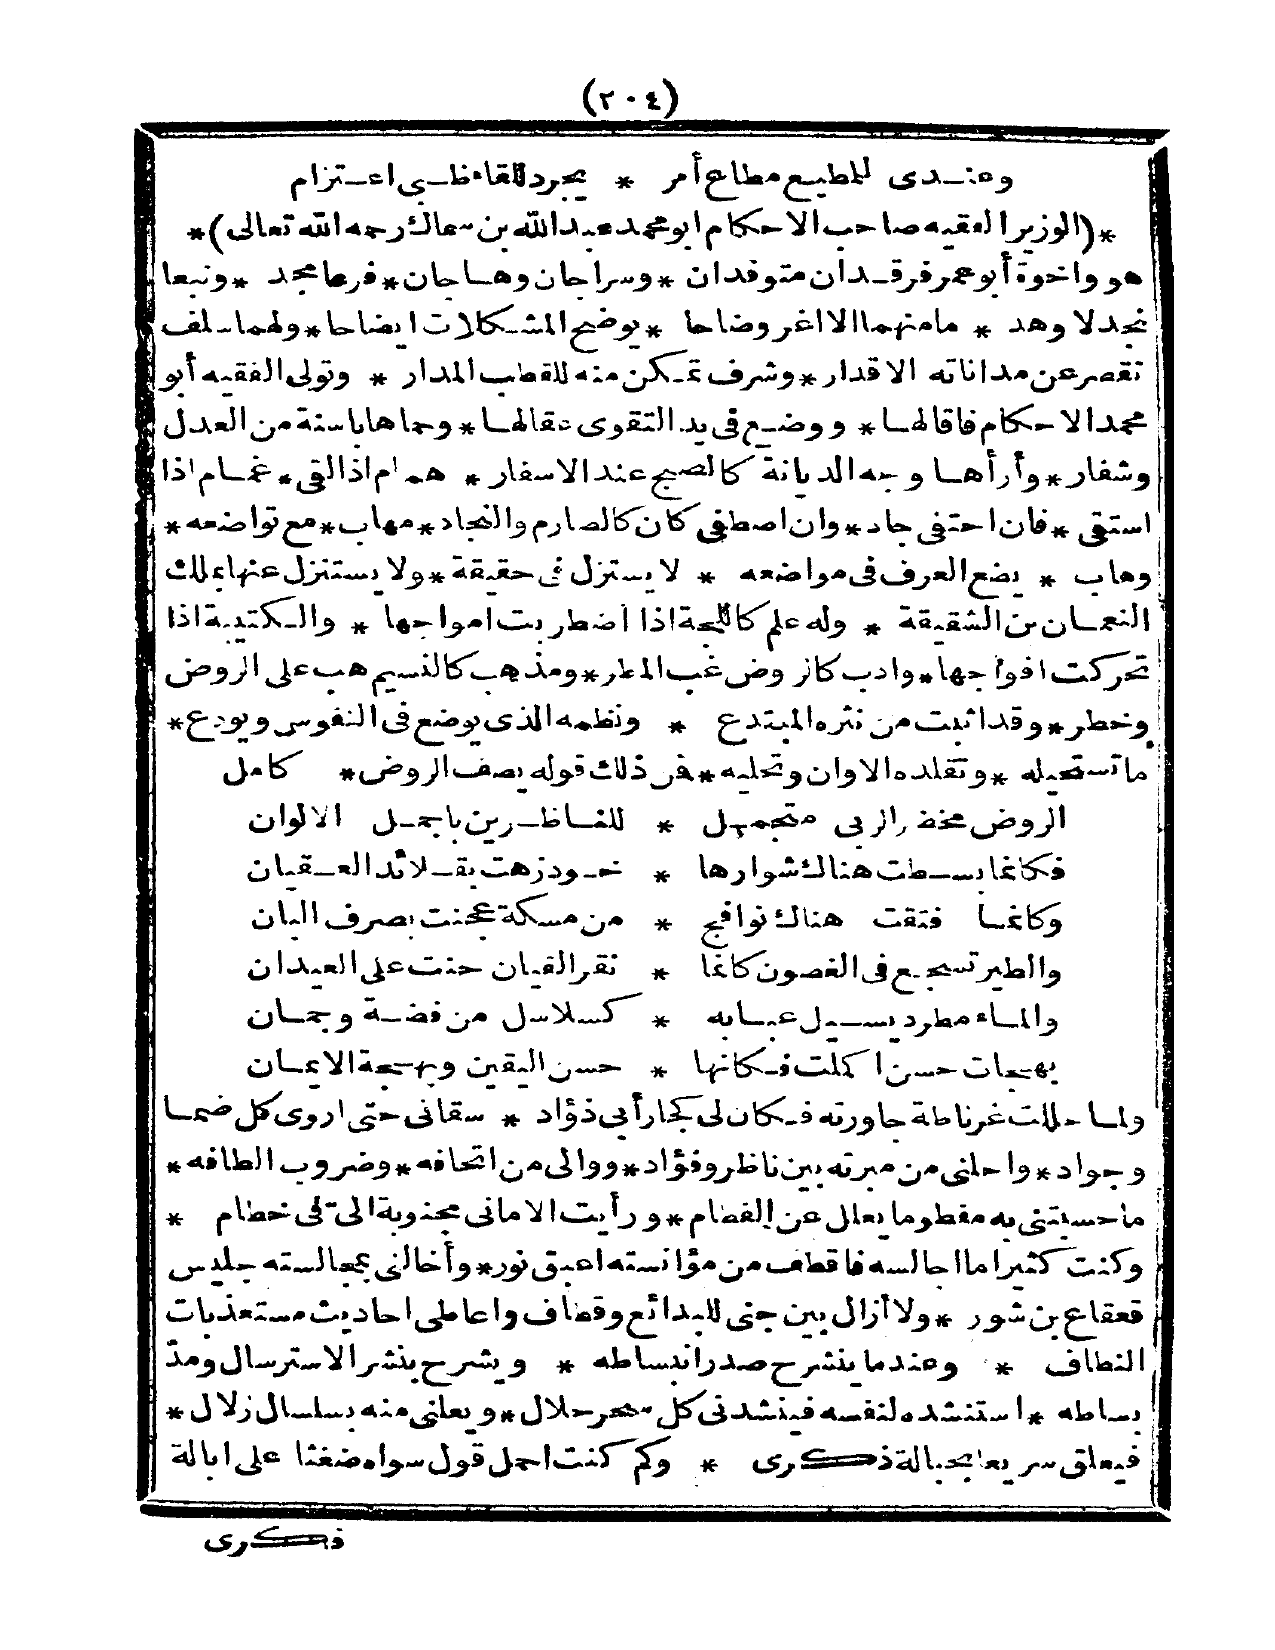 (٢٠٤)
وعندى للمطيع مطاع أمر * يجرد للقاظبى اعتزام
*(الوزير الفقيه صاحب الاحكام ابو محمد عبد الله بن سماك رحمه الله تعالى)*
هو واخوة أبو عمر فرقدان متوقدان * وسراجان وهاجان * فرعا مجد * ونبعا
نجد لا وهد * مامنهما الا اغر وضاحا * يوضح المشكلات ايضاحا * ولهما سلف
تقصر عن مداناته الاقدار * وشرف تمكن منه للقطب المدار * وتولى الفقيه أبو
محمد الاحكام فاقالها * ووضع فى يد التقوى عقالها * وحماها باسنة من العدل
وشفار * وأرأها وجه الديانة كالصبح عند الاسفار * همام اذا لقى * غمام اذا
استقى * فان احتفى جاد * وان اصطفى كان كالصارم والنجاد * مهاب * مع تواضعه *
وهاب * يضع العرف فى مواضعه * لا يستزل فى حقيقة * ولا يستنزل عنها بملك
النعمان بن الشقيقة * وله علم كاللجة اذا اضطربت امواجها * والكتيبة اذا
تحركت افواجها * وادب كالروض غب المطر * ومذهب كالنسيم هب على الروض
وخطر * وقد اثبت من نثره المبتدع * ونظمه الذى يوضع فى النفوس ويودع *
ما تستحيله * وتقلده الاوان وتحليه * فمن ذلك قوله يصف الروض * كامل
الروض مخضر الربى متجميل * للناظرين باجمل الالوان
فكانما بسطت هناك شوارها * خود زهت بقلائد العقيان
وكانما فتقت هناك نوافج * من مسكة عجنت بصرف البان
والطير تسجع فى الغصون كانما * نقر القيان حنت على العيدان
والماء مطرد يسيل عبابه * كسلاسل من فضة وجمان
بهجات حسن اكملت فكانها * حسن اليقين وبهجة الايمان
ولما حللت غرناطة جاورته فكان لى كجار أبى دؤاد * سقانى حتى اروى كل ضما
وجواد * واحلنى من مبرته بين ناظر وفؤاد * ووالى من اتحافه * وضروب الطافه *
ما حسبتنى به مفطوما يعالل عن الفطام * ورأيت الامانى مجذوبة الى فى خطام *
وكنت كثيرا ما اجالسه فاقطف من مؤانسته اعبق نور * وأخالنى بمجالسته جليس
قعقاع بن شور * ولا أزال بين جنى للبدائع وقطاف واعاطى احاديث مستعذبات
النطاف * وعندما ينشرح صدر انبساطه * ويشرح بنشر الاسترسال ومدّ
بساطه * استنشده لنفسه فينشدنى كل سحر حلال * ويعلنى منه بسلسال زلال *
فيعلق سريعا بحبالة ذكرى * وكم كنت احمل قول سواه ضغثا على ابالة
فكرى